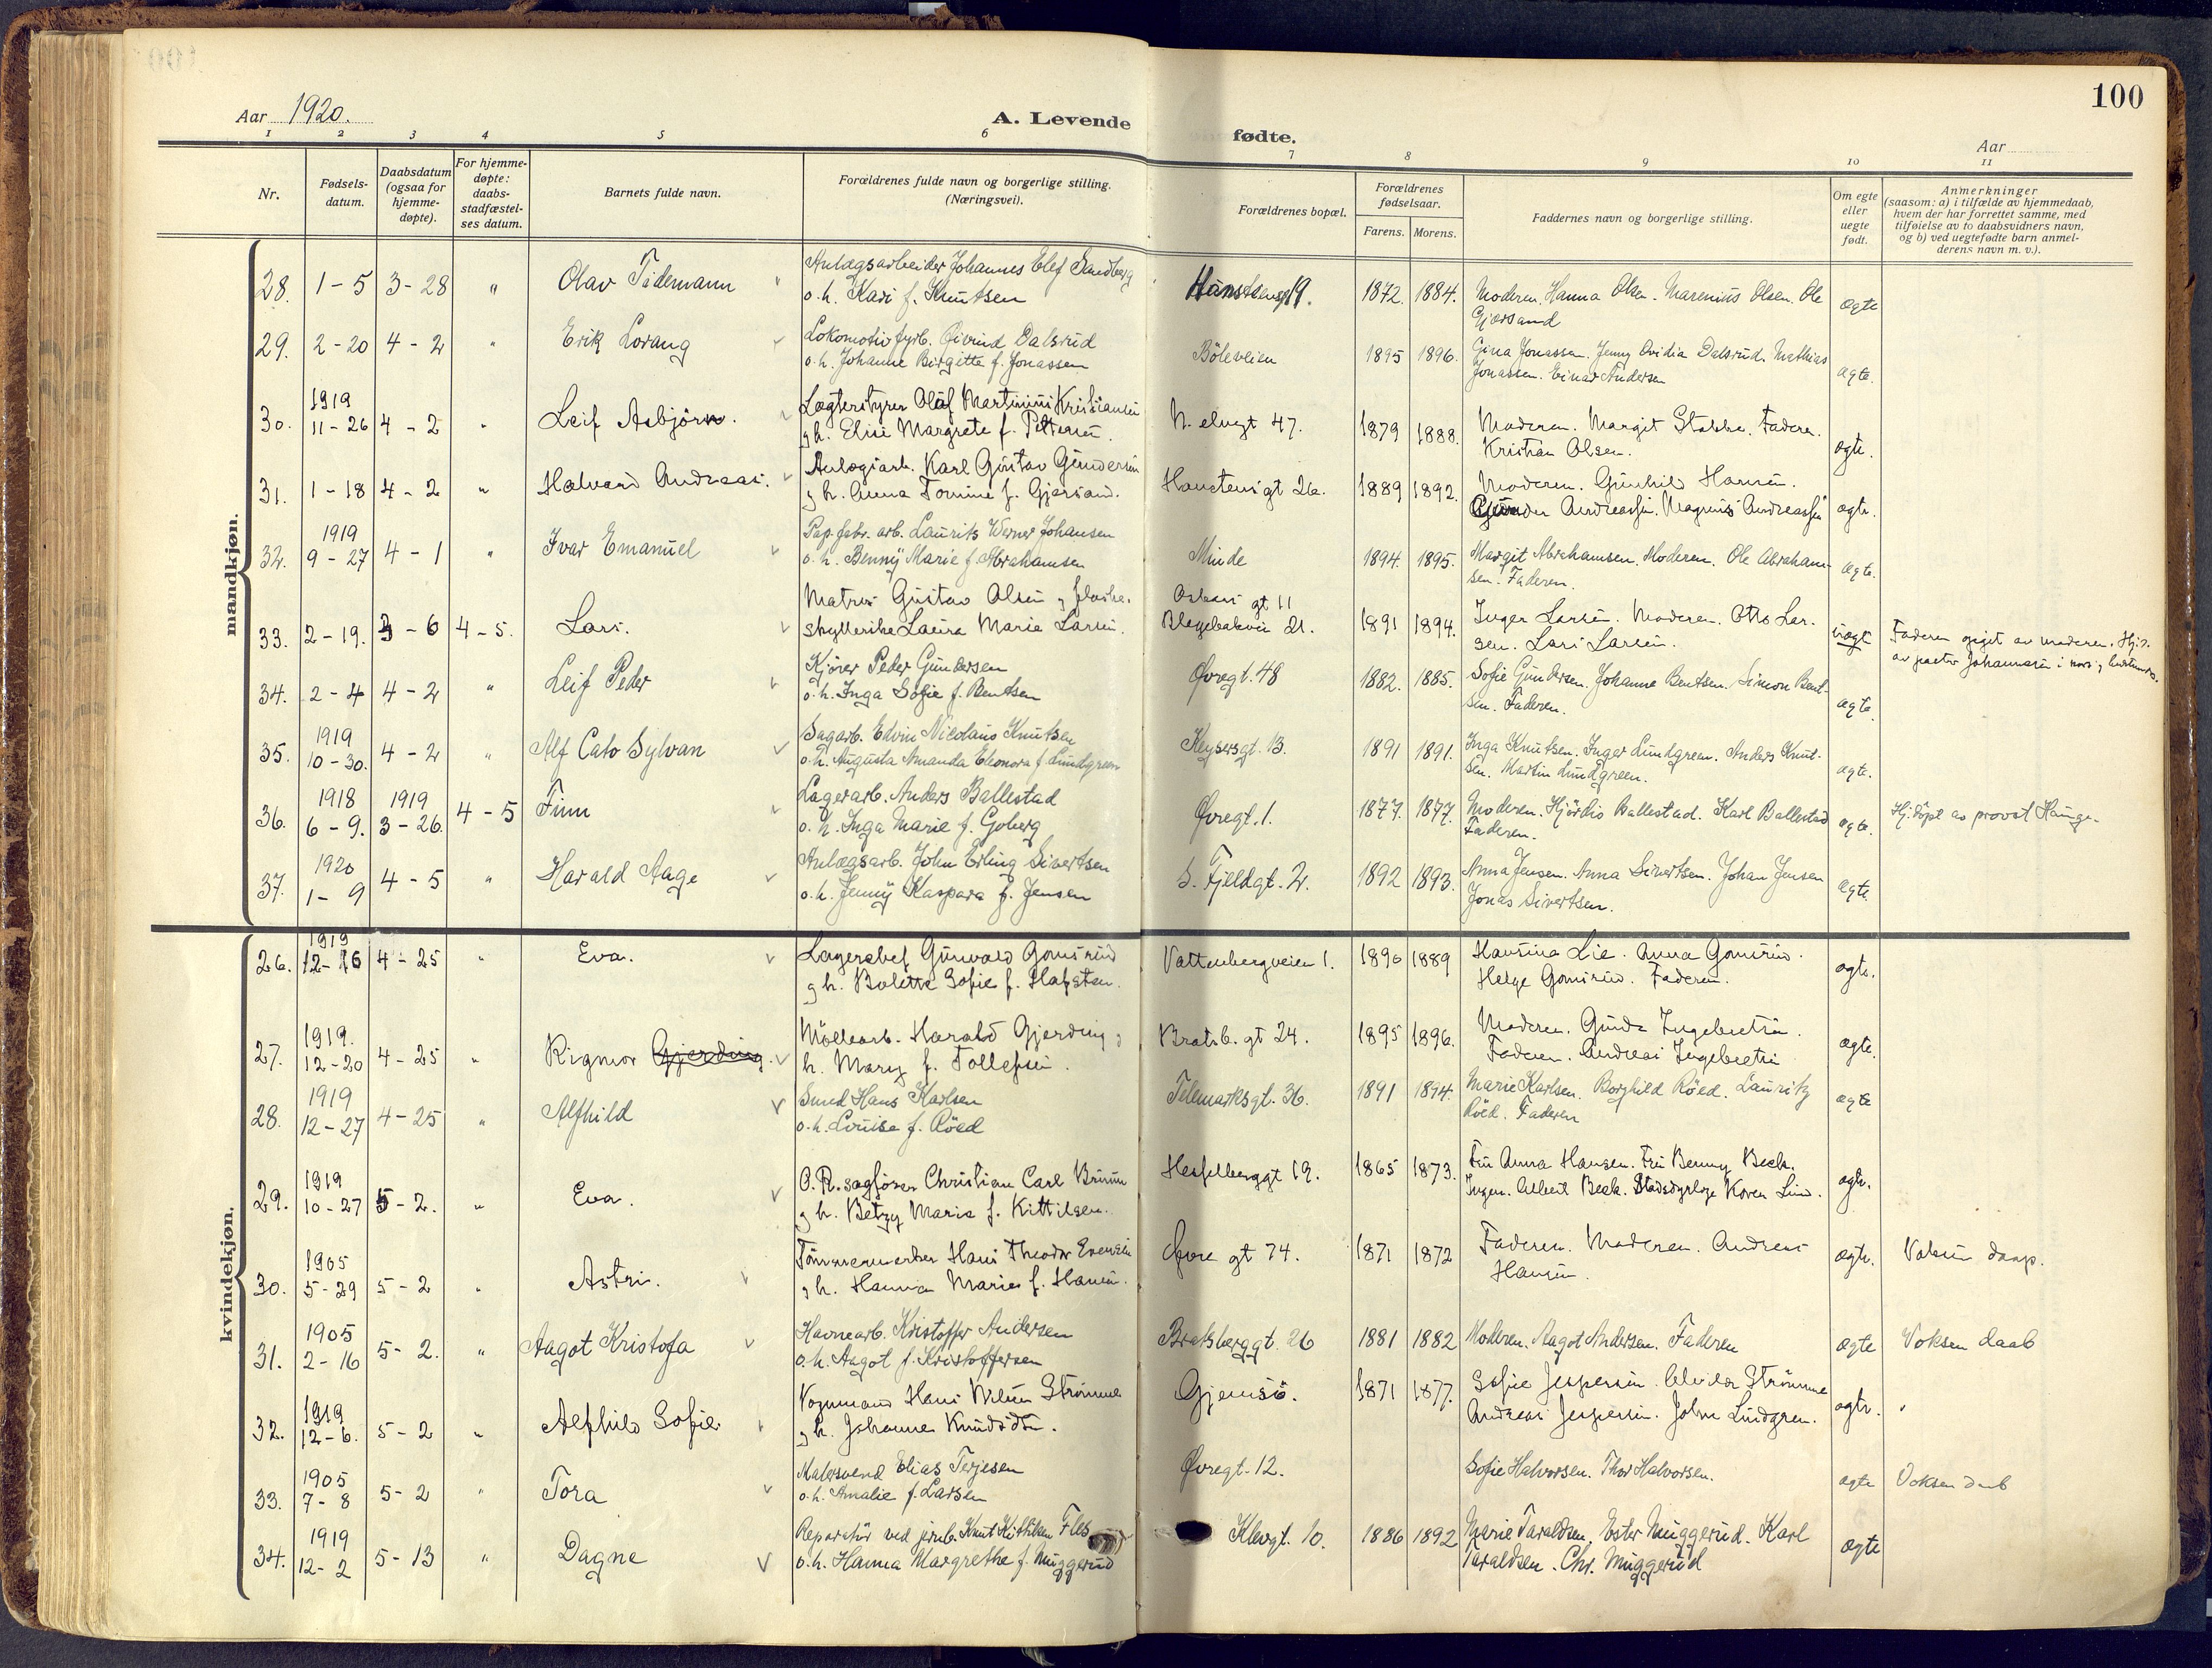 100
Aar 1920.
A. Levende fødte.
Aar
1 2 3 4 5 6 7 8 9 10 11
Nr.
Fødsels-
datum.
Daabsdatum
(ogsaa for
hjemme-
døpte).
For hjemme-
døpte:
daabs-
stadfæstel-
ses datum.
Barnets fulde navn.
Forældrenes fulde navn og borgerlige stilling.
(Næringsvei).
Forældrenes bopæl.
Forældrenes
fødselsaar.
Farens. Morens.
Faddernes navn og borgerlige stilling.
Om egte
eller
uegte
født.
Anmerkninger
(saasom: a) i tilfælde av hjemmedaab,
hvem der har forrettet samme, med
tilføielse av to daabsvidners navn,
og b) ved uegtefødte barn anmel-
derens navn m. v.).
mandkjøn.
28. 1-5 3-28 " Olav Tidemann Anlægsarbeider Johannes Elef Sandberg 19. 1872. 1884. Moderen. Hanna Olsen. Marenius Olsen. Ole
o. h. Kari f. Knutsen Gjersand ægte
29. 2-20 4-2 " Erik Lorang Lokomotivfyrb. Øivind Dalsrud Böleveien 1895 1896. Gina Jonassen. Jenny Ovidia Dalsrud. Mathias
o. h. Johanne Birgitte f. Jonassen Jonassen. Einar Andersen ægte.
1919
30. 11-26 4-2 " Leif Asbjørn. Olaf Martinius Kristiansen N. elvegt 47. 1879 1888. Moderen. Margit Stokke. Faderen.
g h. Elise Margrete f. Pettersen. Kristian Olsen. ægte.
31. 1-18 4-2 " Halvard Andreas. Anlægsarb. Karl Gustav Gundersen Hanstensgt 26. 1889 1892. Moderen. Gunhild Hansen.
g h. Anna Tomine f. Gjersand. Gunder Andreassen. Magnus Andreassen ægte.
1919
32. 9-27 4-1 " Ivar Emanuel Pap. fabr. arb. Laurits Werner Johansen Minde 1894. 1895. Margit Abrahamsen. Moderen. Ole Abraham-
o. h. Benny Marie f. Abrahamsen sen. Faderen. ægte.
33. 2-19. 3-6 4-5. Lars. Matros Gustav Olsen g flaske- gt 11 1891 1894. Inger Larsen. Moderen. Otto Lar-
skyllerske Laura Marie Larsen. 21. sen. Lars Larsen. uægt Faderen opgit av moderen. Hj.d.
av pastor Johannesen i
34. 2-4 4-2 " Leif Peder Kjører Peder Gundersen Øvregt. 48 1882. 1885. Sofie Gundersen. Johanne Bentsen. Simon Bent-
o. h. Inga Sofie f. Bentsen sen. Faderen. ægte.
1919
35. 10-30. 4-2 " Alf Cato Sylvan Sagarb. Edvin Nicolaus Knutsen Keysersgt. 13. 1891 1891. Inga Knutsen. Inger Lundgreen. Anders Knut-
o. h. Augusta Amanda Eleonora f. Lundgreen sen. Martin Lundgreen. ægte.
1918 1919
36. 6-9. 3-26. 4-5 Finn Lagerarb. Anders Ballestad Øvregt. 1. 1877. 1877. Moderen. Hjördis Ballestad. Karl Ballestad
o. h. Inga Marie f. Goberg Faderen. ægte. Hj.döpt av provst Hauge.
1920
37. 1-9 4-5 " Harald Aage Anlægsarb. John Erling Sivertsen S. Fjeldgt. 2. 1892 1893. Anna Jensen. Anna Sivertsen. Johan Jensen
o. h. Jenny Kaspara f. Jensen Jonas Sivertsen. ægte.
kvindekjøn.
1919
26. 12-16 4-25 " Eva. Lagerchef Gunvald Gomsrud Vattenbergveien 1. 1896 1889 Hansina Lie. Anna Gomsrud.
g h. Bolette Sofie f. Helge Gomsrud. Faderen. ægte.
1919.
27. 12-20 4-25 " Rigmor Gjerding. Möllearb. Harald Gjerding g Bratsb. gt 24. 1895 1896. Moderen. Guida Ingebretsen.
h. Mary f. Tollefsen. Faderen. Andreas Ingebretsen ægte.
1919
28. 12-27 4-25 " Alfhild Smed Hans Karlsen Telemarksgt. 36. 1891 1894. Marie Karlsen. Borghild Röed. Lauritz
o. h. Louise f. Röed Röed. Faderen ægte
1919
29. 10-27 5-2. " Eva. O. R. sagfører Christian Carl Bruun Hesselberggt 19. 1865 1873. Fru Anna Hansen. Fru Benny Beck.
g h. Betzy Marie f. Kittilsen. Ingen. Albert Beck. Stadsdyrlæge Koren Lund. ægte.
1905
30. 5-29 5-2 " Astri. Tömmermerker Hans Theodor Evensen Øvre gt 74. 1871 1872 Faderen. Moderen. Andreas
g h. Hanna Marie f. Hansen. Hansen. ægte. Voksen daap.
1905
31. 2-16 5-2. " Aagot Kristofa Havnearb. Kristoffer Andersen Bratsberggt. 26 1881 1882 Moderen. Aagot Andersen. Faderen ægte Voksen daab
o. h. Aagot f. Kristoffersen
1919
32. 12-6. 5-2 " Alfhild Sofie Vognmand Hans Strömme Gjemsö. 1871 1877. Sofie Jespersen. Alvilda Strömme
g h. Johanne Knudsdtr. Andreas Jespersen. John Lindgren. ægte. "
1905
33. 7-8 5-2 " Tora Malersvend Elias Terjesen Øvregt. 12. Sofie Halvorsen. Thor Halvorsen. ægte Voksen daab
o. h. Amalie f. Larsen
1919
34. 12-2 5-13 " Dagne Reparatør ved jernb. Knut Kittilsen Fles Klovgt. 10. 1886 1892 Marie Taraldsen. Ester Muggerud. Karl
o. h. Hanna Margrethe f. Muggerud Taraldsen. Chr. Muggerud ægte